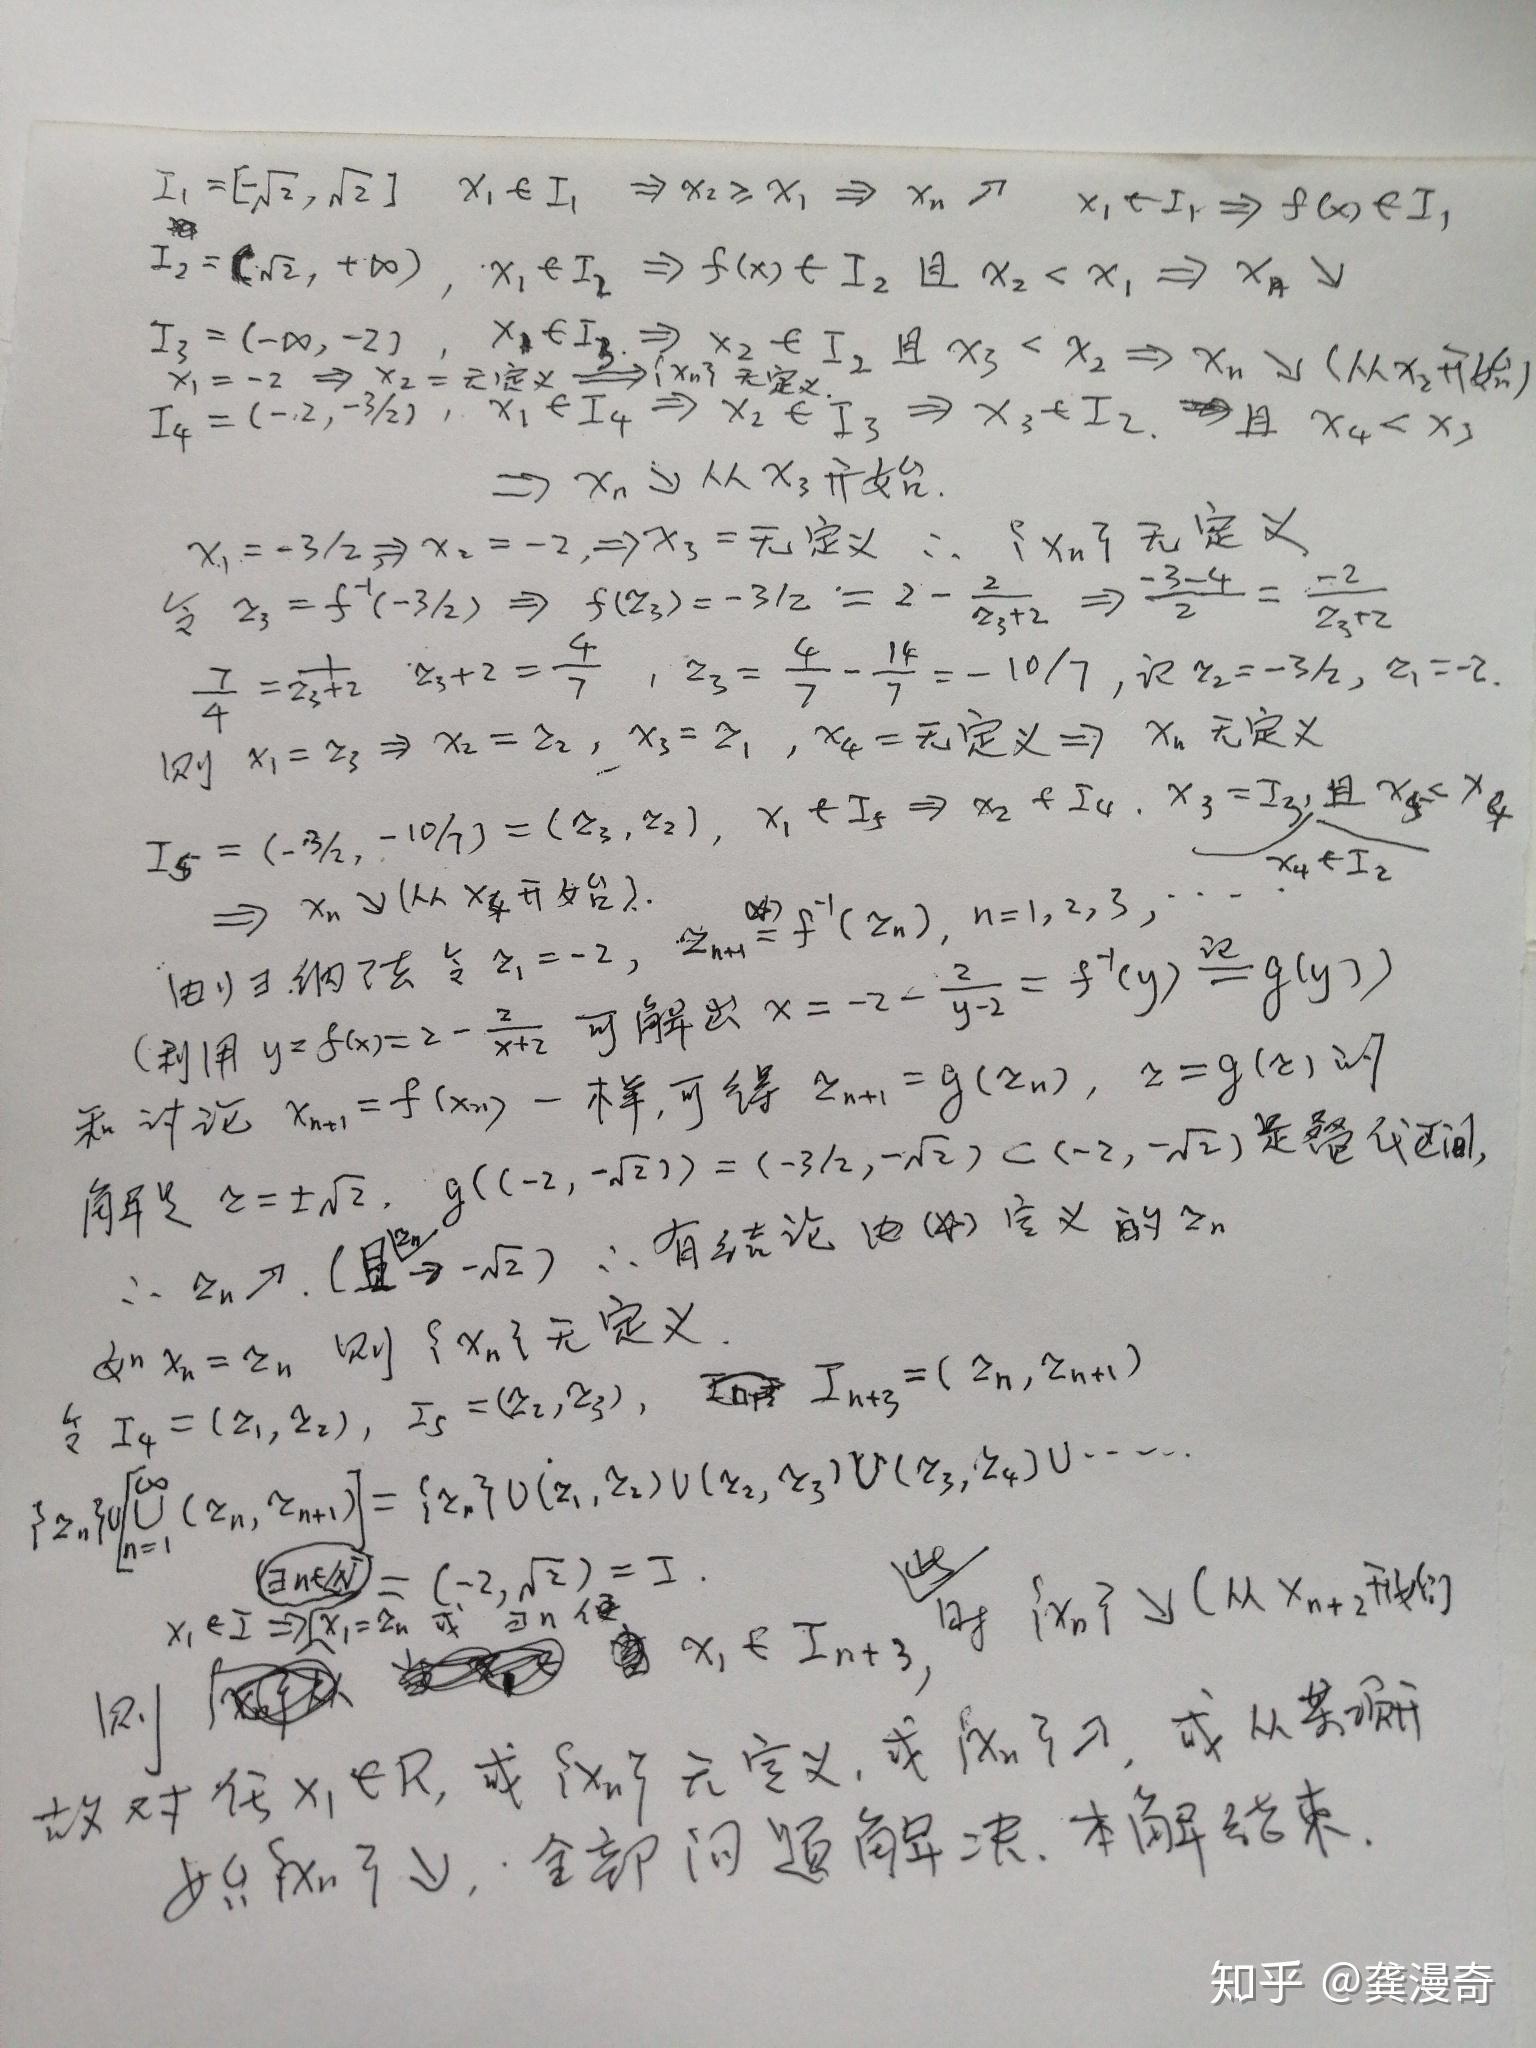 I₁ = [-√2, √2] x₁ ∈ I₁ ⇒ x₂ ≥ x₁ ⇒ xₙ ↗ x₁ ∈ I₁ ⇒ f(x) ∈ I₁
I₂ = (√2, +∞), x₁ ∈ I₂ ⇒ f(x) ∈ I₂ 且 x₂ < x₁ ⇒ xₙ ↘
I₃ = (-∞, -2), x₁ ∈ I₃ ⇒ x₂ ∈ I₂ 且 x₃ < x₂ ⇒ xₙ ↘ (从x₂开始)
x₁ = -2 ⇒ x₂ = 无定义 ⇒ {xₙ} 无定义.
I₄ = (-2, -3/2), x₁ ∈ I₄ ⇒ x₂ ∈ I₃ ⇒ x₃ ∈ I₂. 且 x₄ < x₃
⇒ xₙ ↘ 从 x₃ 开始.
x₁ = -3/2 ⇒ x₂ = -2, ⇒ x₃ = 无定义 ∴ {xₙ} 无定义
令 z₃ = f⁻¹(-3/2) ⇒ f(z₃) = -3/2 = 2 - 2/(z₃+2) ⇒ (-3-4)/2 = -2/(z₃+2)
7/4 = 1/(z₃+2) z₃+2 = 4/7, z₃ = 4/7 - 14/7 = -10/7, 记 z₂ = -3/2, z₁ = -2.
则 x₁ = z₃ ⇒ x₂ = z₂, x₃ = z₁, x₄ = 无定义 ⇒ xₙ 无定义
I₅ = (-3/2, -10/7) = (z₃, z₂), x₁ ∈ I₅ ⇒ x₂ ∈ I₄. x₃ = I₃, 且 x₅ < x₄
x₄ ∈ I₂
⇒ xₙ ↘ (从 x₄ 开始).
由归纳法令 z₁ = -2, zₙ₊₁ (*)= f⁻¹(zₙ), n = 1, 2, 3, ······
(利用 y = f(x) = 2 - 2/(x+2) 可解出 x = -2 - 2/(y-2) = f⁻¹(y) 记= g(y))
和讨论 xₙ₊₁ = f(xₙ) 一样, 可得 zₙ₊₁ = g(zₙ), z = g(z) 的
解是 z = ±√2. g((-2, -√2)) = (-3/2, -√2) ⊂ (-2, -√2) 是迭代区间,
∴ zₙ ↗. (且 zₙ → -√2) ∴ 有结论 由(*) 定义的 zₙ
如 xₙ = zₙ 则 {xₙ} 无定义.
令 I₄ = (z₁, z₂), I₅ = (z₂, z₃), Iₙ₊₃ = (zₙ, zₙ₊₁)
{zₙ}∪[∪ₙ₌₁^∞ (zₙ, zₙ₊₁)] = {zₙ}∪(z₁, z₂)∪(z₂, z₃)∪(z₃, z₄)∪······
= (-2, √2) = I.
x₁ ∈ I ⇒ x₁ = zₙ 或 ∃n 使
则 x₁ ∈ Iₙ₊₃, 此时 {xₙ} ↘ (从 xₙ₊₂ 开始)
故对任 x₁ ∈ R, 或 {xₙ} 无定义, 或 {xₙ} ↗, 或从某项开
始{xₙ} ↘. 全部问题解决. 本解结束.
知乎 @龚漫奇